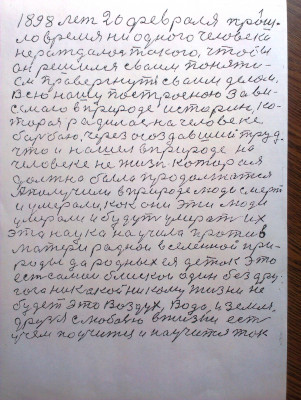 1898 лет 20 февраля прош-
ло время ни одного человека
не рождалось такого, чтобы
он решился своим поняти-
ем правергнуть своим делом.
Всю нашу построеною зави-
смаго в природе историю, ко-
торая родилась на человеке
борбою, через создавший труд.
что и нашел в природе на
человеке не жизн которая
должна была продолжатся
А получили в природе люди смерт
и умирали, как они эти люди
умирали и будут умират их
эта наука научила против
матери родной вселенной при-
роды да родных ея деток Это
ест самии близкой один без дру-
гога никакой никому жизни не
будет это Воздух, Вода, и земля,
друзя с любовю в жизни ест
чем поучится и научится так